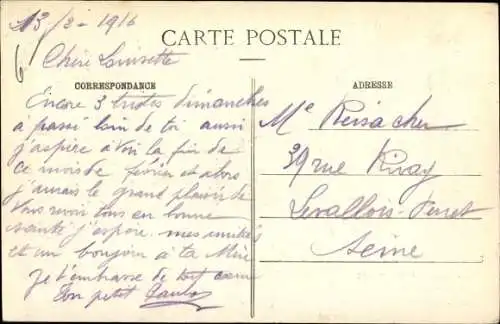 13/2 - 1916
CARTE POSTALE
6
Chère Louisette
CORRESPONDANCE
ADRESSE
Encore 3 tristes dimanches
à passé loin de toi aussi
j'aspère à voir la fin de
ce mois de février et alors
j'aurais le grand plaisir de
vous revoir tous en bonne
santé j'espère. mes amitiés
et un bonjour à ta Mère
je t'embrasse de tout cœur
Ton petit
Me Reisacher
39 rue Rivay
Levallois-Perret
Seine